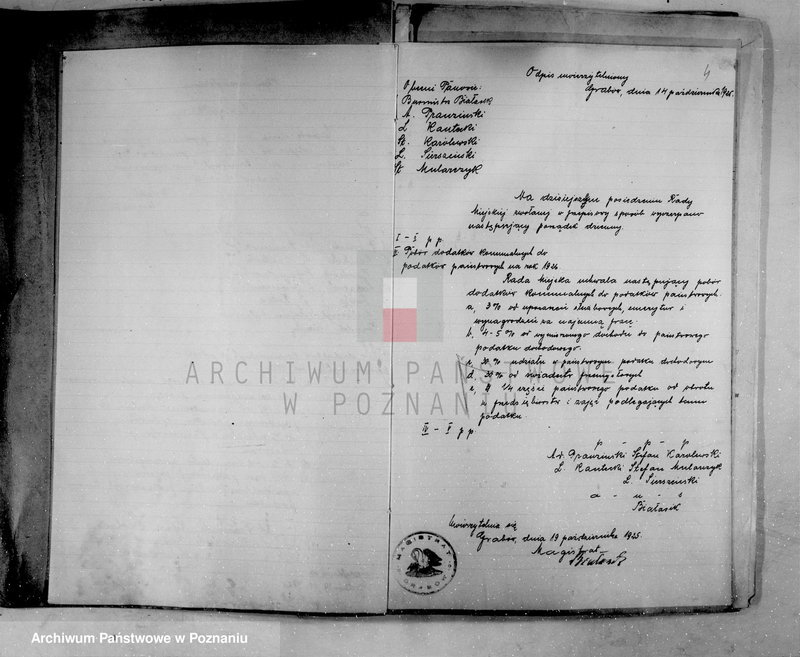 4
Odpis uwierzytelniony
Grabów, dnia 14 października 1925.
Obecni Panowie:
Burmistrz Białasik
A. Prauziński
L. Kantecki
St. Karolewski
L. Sierszeński
St. Mularczyk
Na dzisiejszym posiedzeniu Rady
Miejskiej zwołanej w przepisowy sposób wyczerpano
następujący porządek dzienny.
I - I p p
II Pobór dodatków komunalnych do
podatków państwowych na rok 1926.
Rada Miejska uchwala następujący pobór
dodatków komunalnych do podatków państwowych.
a, 3% od uposażeń służbowych, emerytur i
wynagrodzeń za najemną pracę
b, 4-5% od wymierzonego dochodu do państwowego
podatku dochodowego.
c, 30% udziału w państwowym podatku dochodowym
d, 30% od świadectw przemysłowych
e, 1/4 części państwowego podatku od obrotu
z przedsiębiorstw i zajęć podlegających temu
podatku.
IV - V p p
p - p - p
At. Prauziński Stefan Karolewski
L. Kantecki Stefan Mularczyk
L. Sierszeński
a - u - s
Białasik
Uwierzytelnia się
Grabów, dnia 19 października 1925.
Magistrat
Białasik
MAGISTRAT
GRABÓW
ARCHIWUM PAŃSTWOWE
W POZNANIU
Archiwum Państwowe w Poznaniu